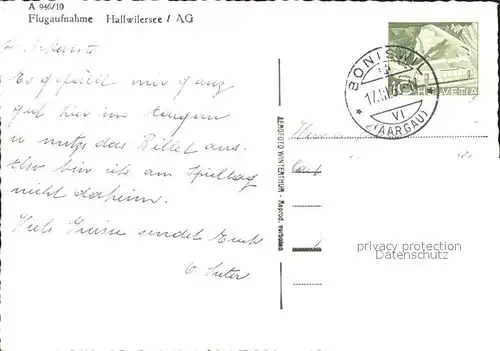 A 946/10
Flugaufnahme Hallwilersee / AG
Es gefällt mir ganz
gut hier im
u nutze das Billet aus.
Also bin ich am Spieltag
nicht daheim.
Viele Grüsse sendet Euch
Suter
AEROFOTO WINTERTHUR -
BONISWIL
(AARGAU)
VI
HELVETIA
privacy protection
Datenschutz